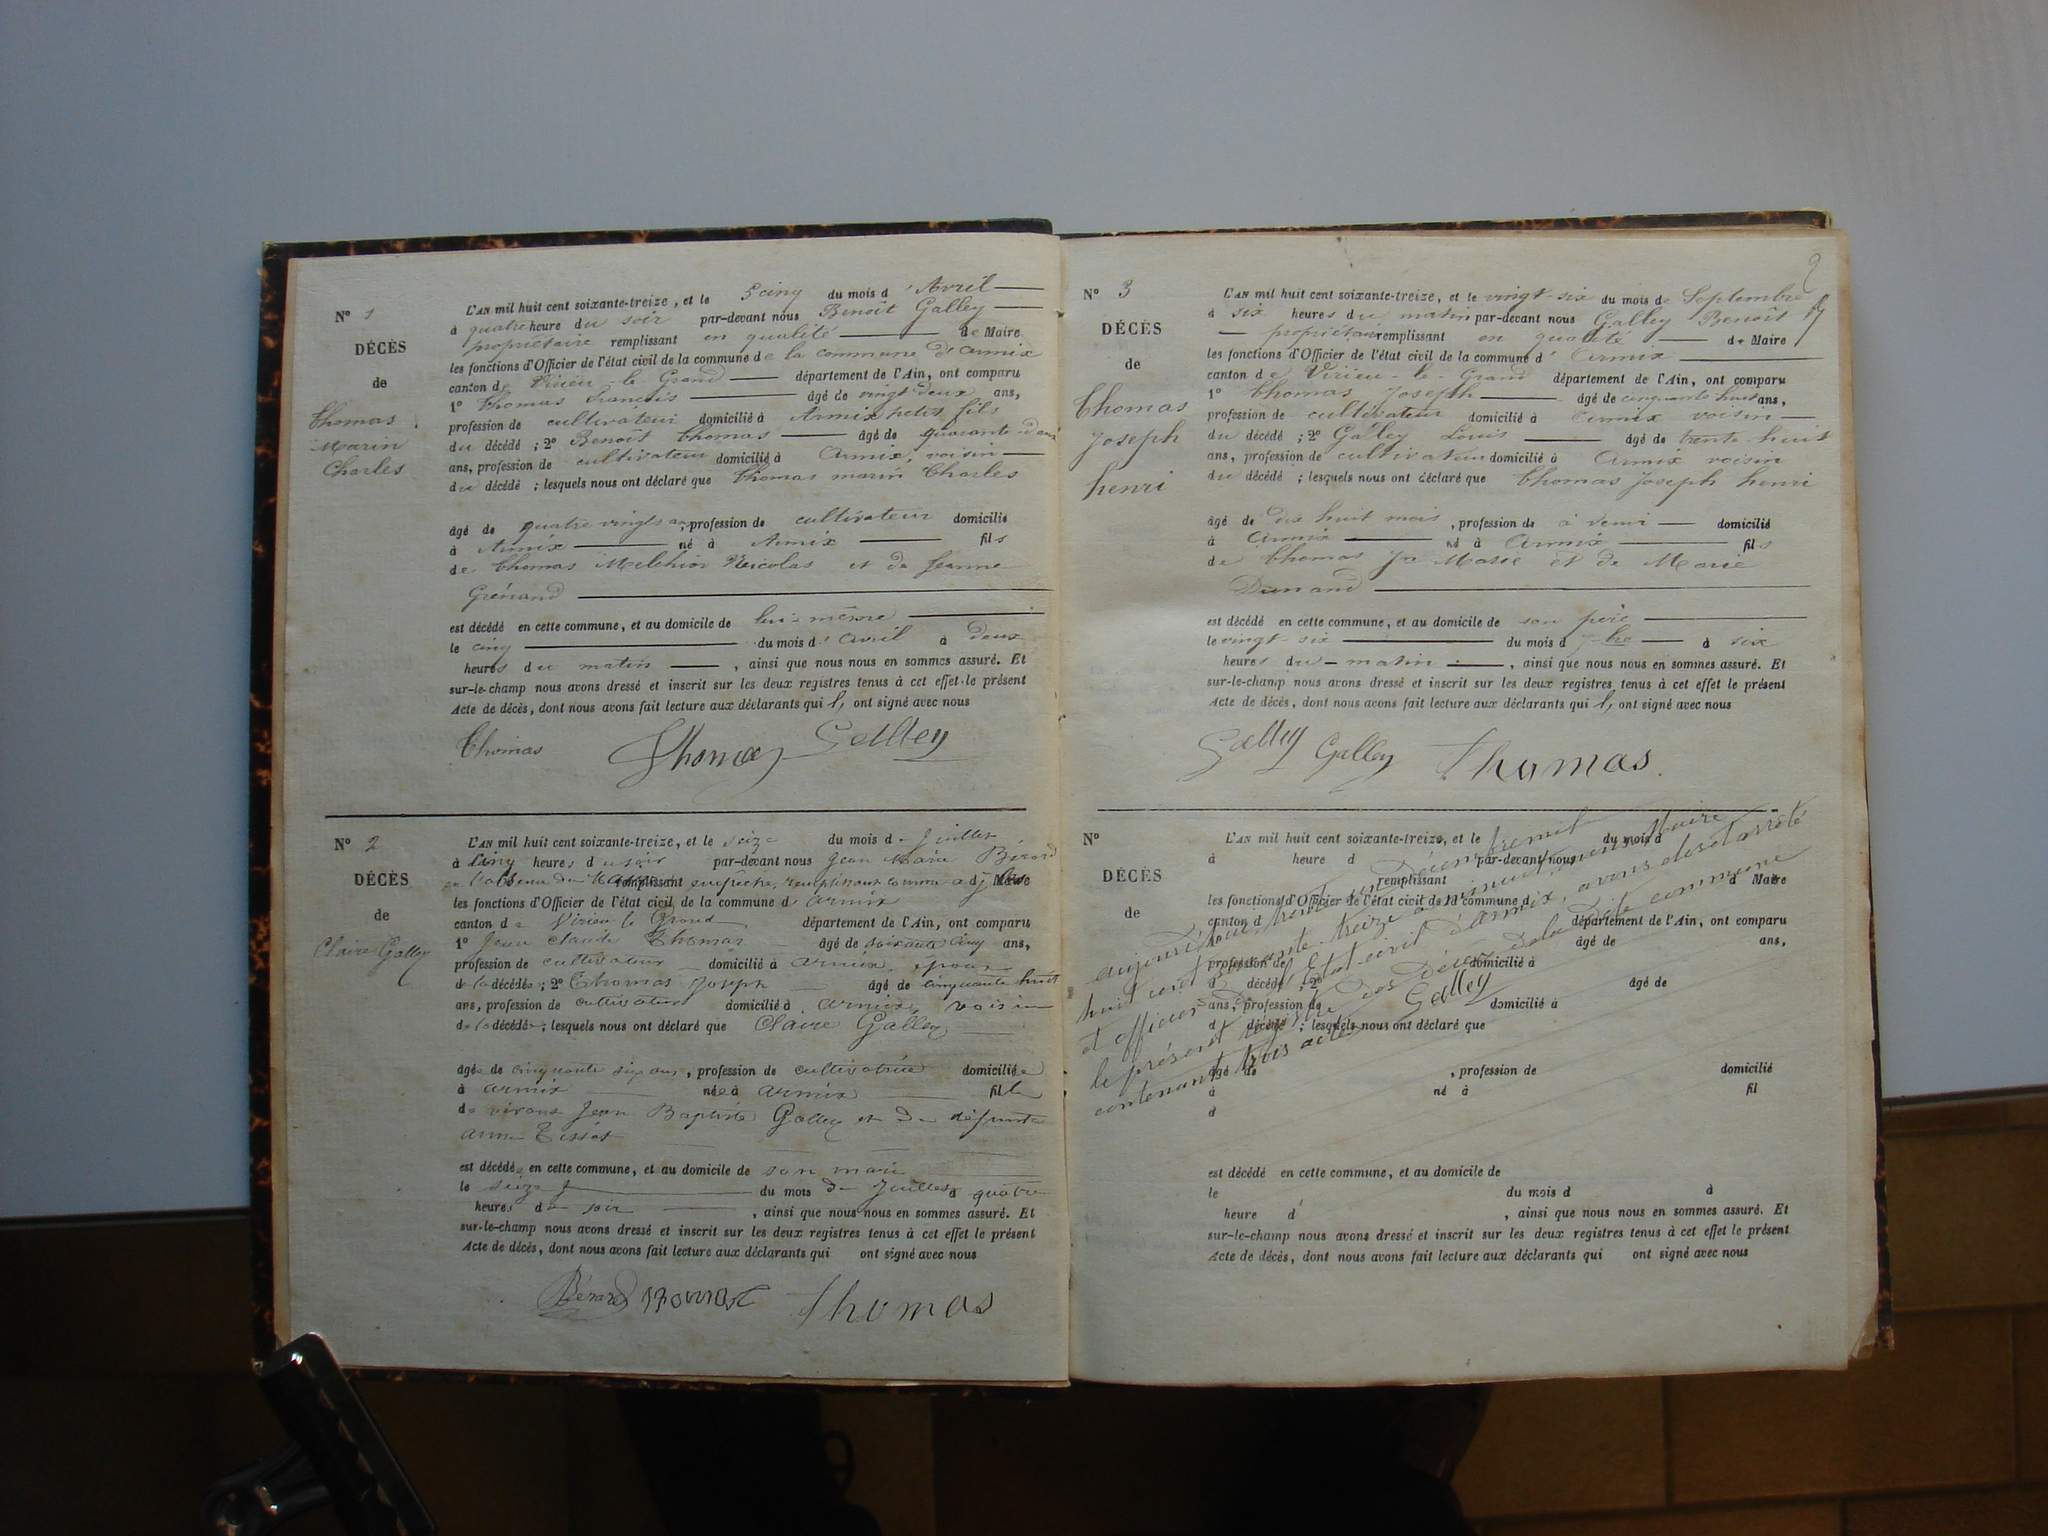 N° 1
DÉCÈS
de
Thomas
Marin
Charles
L'AN mil huit cent soixante-treize, et le 5 cinq du mois d'Avril
à quatre heure du soir par-devant nous Benoît Galley
propriétaire remplissant en qualité de Maire
les fonctions d'Officier de l'état civil de la commune de la commune d'Armix
canton de Virieu-le Grand département de l'Ain, ont comparu
1° Thomas François âgé de vingt deux ans,
profession de cultivateur domicilié à Armix petit fils
du décédé ; 2° Benoît Thomas âgé de quarante
ans, profession de cultivateur domicilié à Armix, voisin
du décédé ; lesquels nous ont déclaré que Thomas marin Charles
âgé de quatre vingts ans, profession de cultivateur domicilié
à Armix né à Armix fils
de Thomas Melchior Nicolas et de Jeanne
Grénand
est décédé en cette commune, et au domicile de lui-même
le cinq du mois d'avril à deux
heures du matin, ainsi que nous nous en sommes assuré. Et
sur-le-champ nous avons dressé et inscrit sur les deux registres tenus à cet effet le présent
Acte de décès, dont nous avons fait lecture aux déclarants qui ont signé avec nous
Thomas Thomas Galley
N° 2
DÉCÈS
de
Claire Galley
L'AN mil huit cent soixante-treize, et le seize du mois de Juillet
à cinq heures du soir par-devant nous Jean Marie Bérard
en l'absence du Maire empêché, remplissant comme adj. de Maire
les fonctions d'Officier de l'état civil de la commune d'armix
canton de Virieu le Grand département de l'Ain, ont comparu
1° Jean Claude Thomas âgé de soixante cinq ans,
profession de cultivateur domicilié à armix, époux
de la décédée ; 2° Thomas Joseph âgé de cinquante huit
ans, profession de cultivateur domicilié à armix, voisin
de la décédée ; lesquels nous ont déclaré que Claire Galley
âgée de cinquante six ans, profession de cultivatrice domiciliée
à armix née à armix fille
de vivant Jean Baptiste Galley et de défunte
anne Tissot
est décédée en cette commune, et au domicile de son mari
le seize du mois de Juillet à quatre
heures du soir, ainsi que nous nous en sommes assuré. Et
sur-le-champ nous avons dressé et inscrit sur les deux registres tenus à cet effet le présent
Acte de décès, dont nous avons fait lecture aux déclarants qui ont signé avec nous
Bérard Thomas Thomas
2
N° 3
DÉCÈS
de
Thomas
Joseph
henri
L'AN mil huit cent soixante-treize, et le vingt-six du mois de Septembre
à six heures du matin par-devant nous Galley Benoît
propriétaire remplissant en qualité de Maire
les fonctions d'Officier de l'état civil de la commune d'Armix
canton de Virieu-le-Grand département de l'Ain, ont comparu
1° Thomas Joseph âgé de cinquante huit ans,
profession de cultivateur domicilié à Armix voisin
du décédé ; 2° Galley Louis âgé de trente-huit
ans, profession de cultivateur domicilié à Armix voisin
du décédé ; lesquels nous ont déclaré que Thomas Joseph henri
âgé de dix huit mois, profession de à venir domicilié
à Armix né à Armix fils
de Thomas Jn Marie et de Marie
Dunand
est décédé en cette commune, et au domicile de son père
le vingt-six du mois d 7bre à six
heures du matin, ainsi que nous nous en sommes assuré. Et
sur-le-champ nous avons dressé et inscrit sur les deux registres tenus à cet effet le présent
Acte de décès, dont nous avons fait lecture aux déclarants qui ont signé avec nous
Galley Galley Thomas.
N°
DÉCÈS
de
L'AN mil huit cent soixante-treize, et le du mois d
à heure d par-devant nous
remplissant d Maire
les fonctions d'Officier de l'état civil de la commune d
canton d département de l'Ain, ont comparu
1° âgé de ans,
profession de domicilié à
d décédé ; 2° âgé de
ans, profession de domicilié à
d décédé ; lesquels nous ont déclaré que
âgé de , profession de domicilié
à né à fil
d
est décédé en cette commune, et au domicile de
le du mois d à
heure d , ainsi que nous nous en sommes assuré. Et
sur-le-champ nous avons dressé et inscrit sur les deux registres tenus à cet effet le présent
Acte de décès, dont nous avons fait lecture aux déclarants qui ont signé avec nous
aujourd'hui trente un Décembre mil
huit cent soixante-treize à minuit, nous Maire
et officier de l'Etat-civil d'Armix, avons clos et arrêté
le présent registre des Décès de la dite commune
contenant trois actes Galley